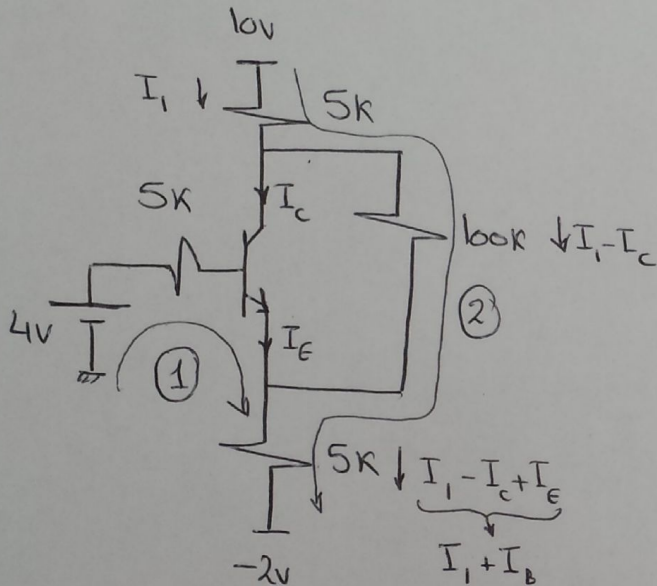 10v
I₁ ↓ 5K
I_C
5K
100K ↓ I₁-I_C
4v
②
I_E
①
5K ↓ I₁ - I_C + I_E
I₁ + I_B
-2v